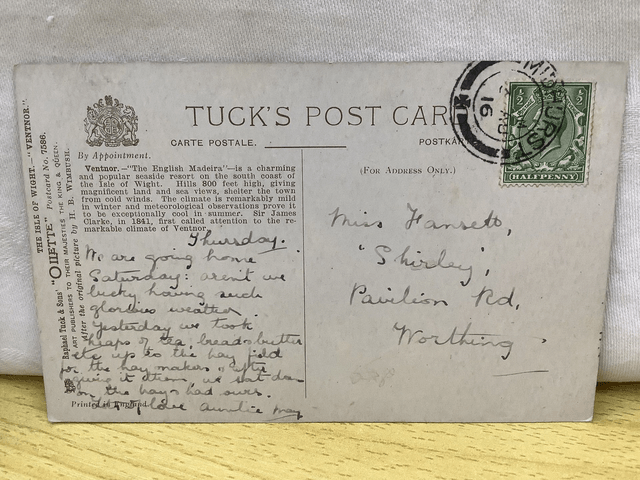 THE ISLE OF WIGHT.—"VENTNOR."
Raphael Tuck & Sons' "OILETTE" Postcard No. 7586.
ART PUBLISHERS TO THEIR MAJESTIES THE KING & QUEEN.
After the original picture by H. B. WIMBUSH.
TUCK'S POST CARD
CARTE POSTALE.
POSTKAR
By Appointment.
(FOR ADDRESS ONLY.)
Ventnor.—"The English Madeira"—is a charming
and popular seaside resort on the south coast of
the Isle of Wight. Hills 800 feet high, giving
magnificent land and sea views, shelter the town
from cold winds. The climate is remarkably mild
in winter and meteorological observations prove it
to be exceptionally cool in summer. Sir James
Clarke, in 1841, first called attention to the re-
markable climate of Ventnor.
Thursday.
We are going home
Saturday: aren't we
lucky having such
glorious weather.
Yesterday we took
heaps of tea, bread & butter
etc up to the hay field
for the hay makers & after
giving it them we sat down
on the hay & had ours.
love Auntie May
Printed in England.
Miss Fansett,
"Shirley",
Pavilion Rd,
Worthing
16
½ ½
HALFPENNY